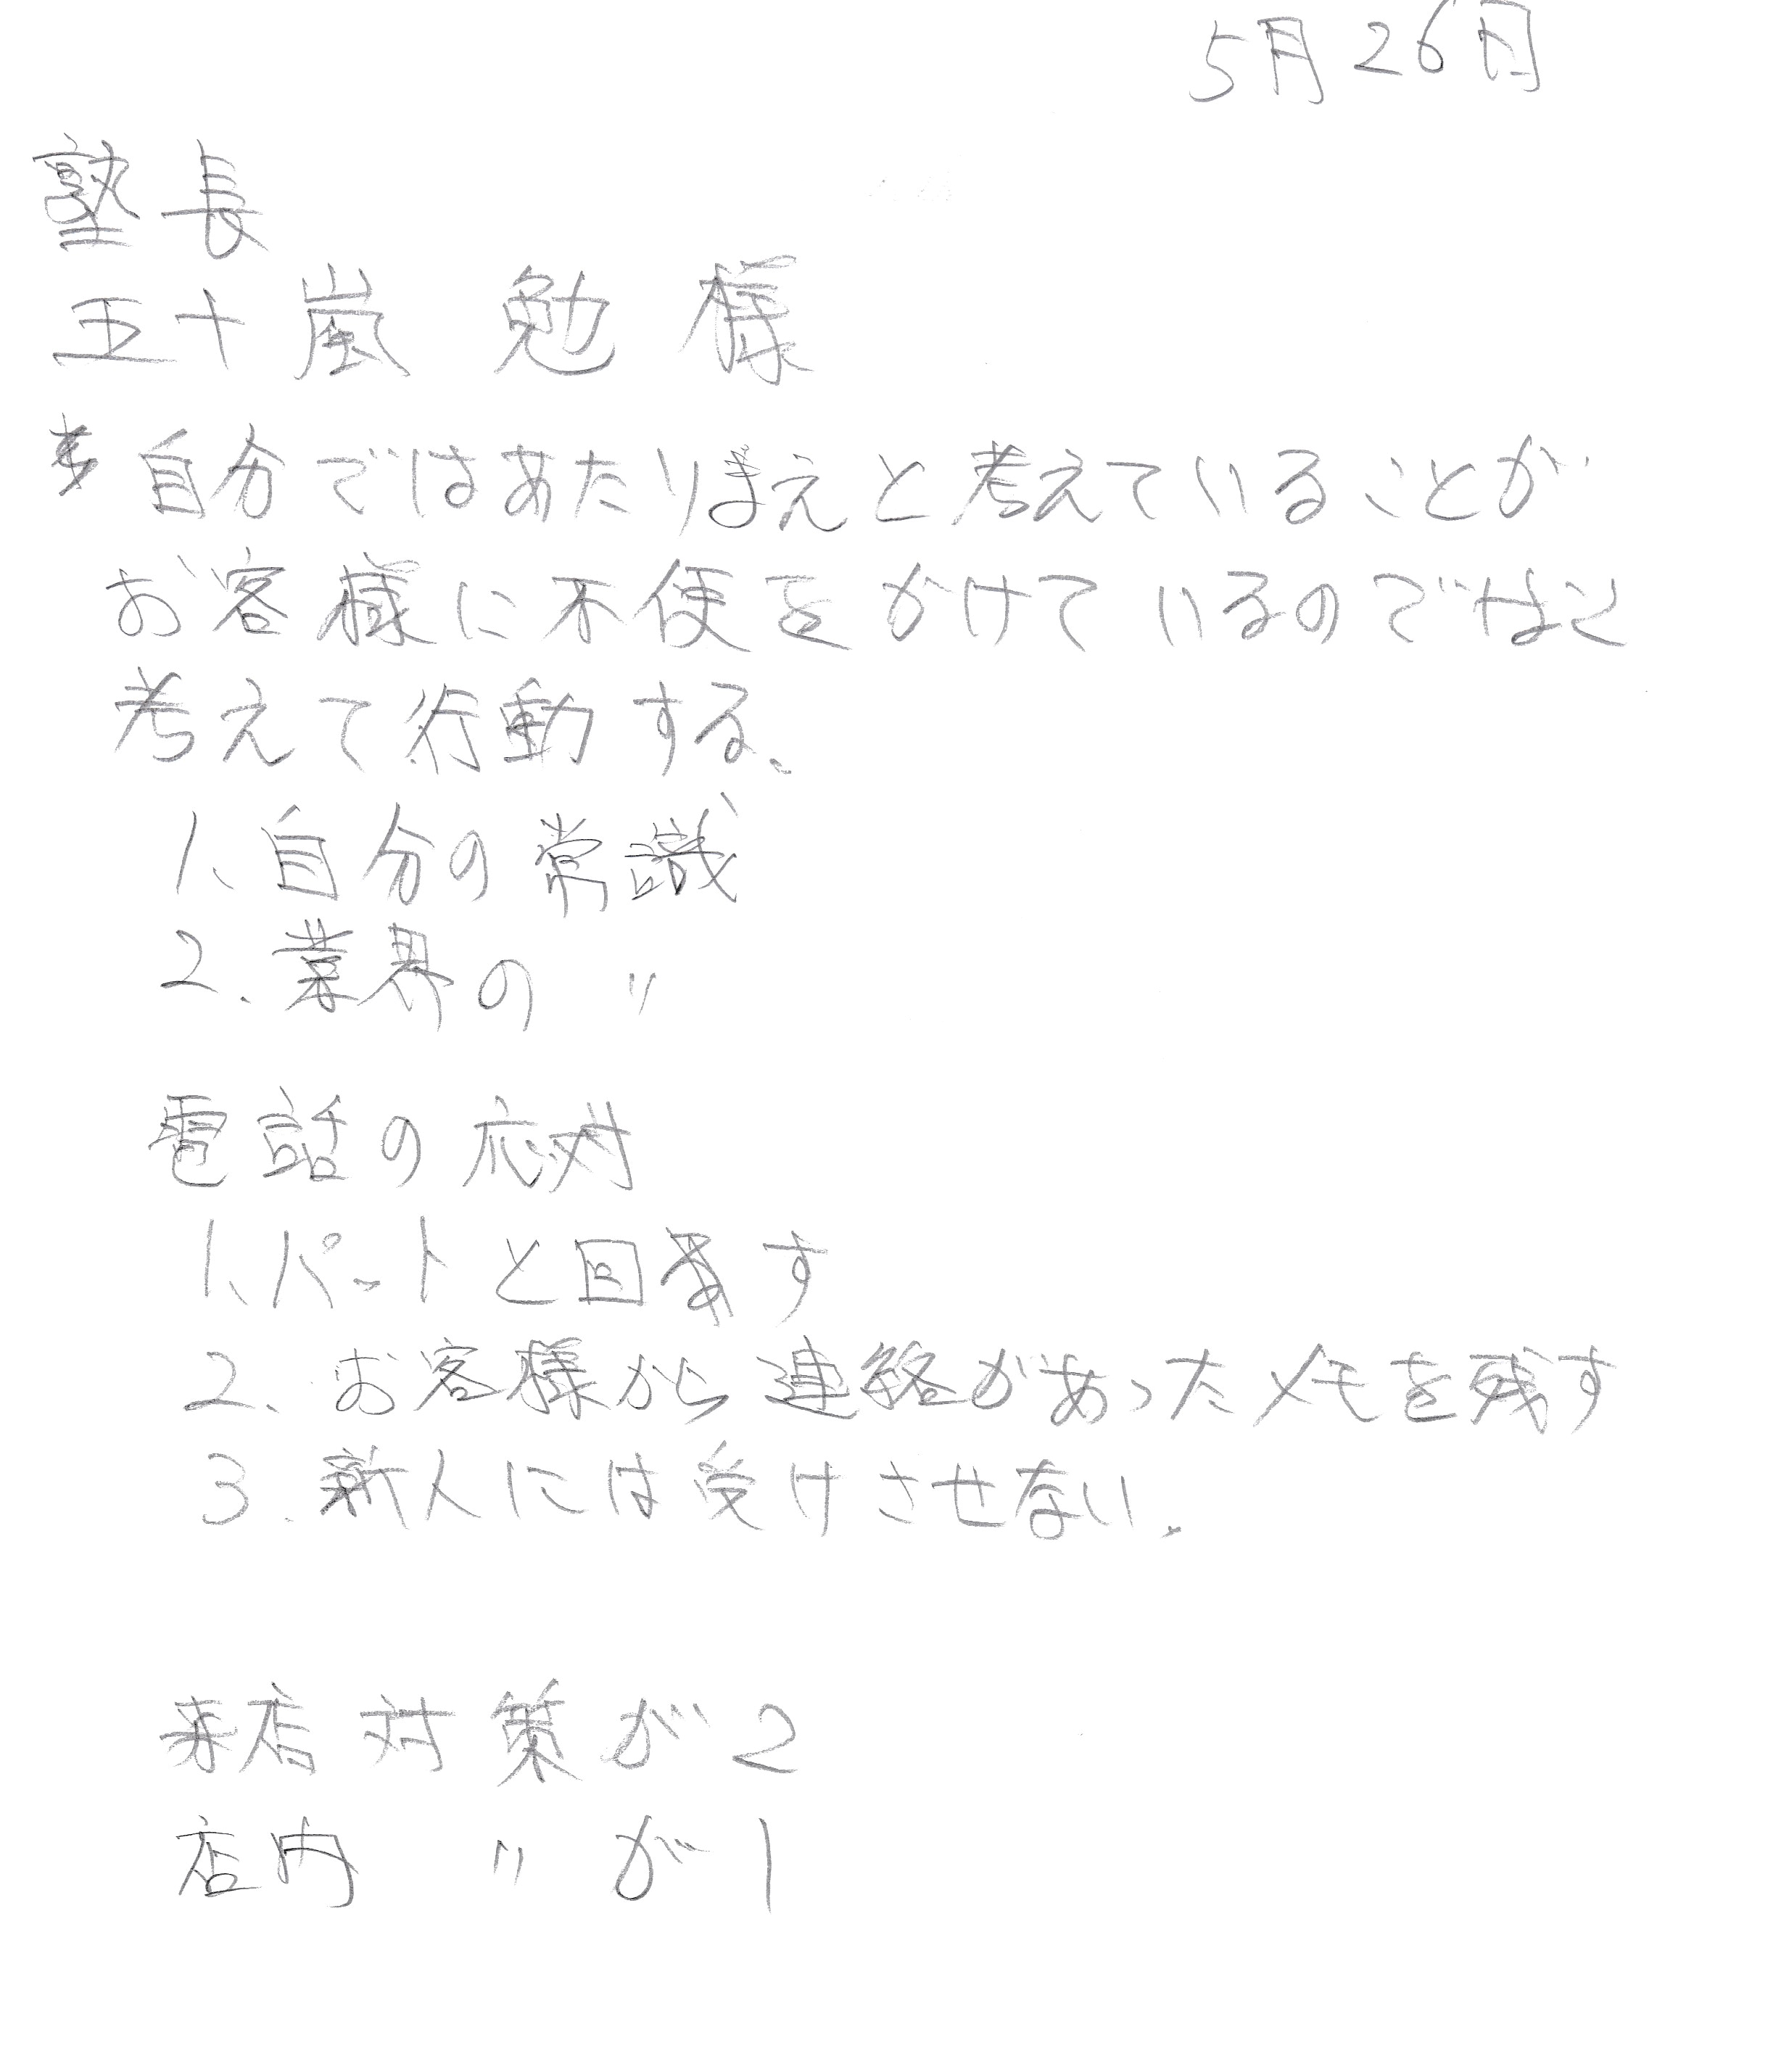 5月26日
塾長
五十嵐 勉 様
自分ではあたりまえと考えていることが
お客様に不便をかけているのではと
考えて行動する、
1、自分の常識
2.業界の 〃
電話の応対
1、パートと回す
2.お客様から連絡があったメモを残す
3.新人には受けさせない.
来店対策が2
店内 〃 が1